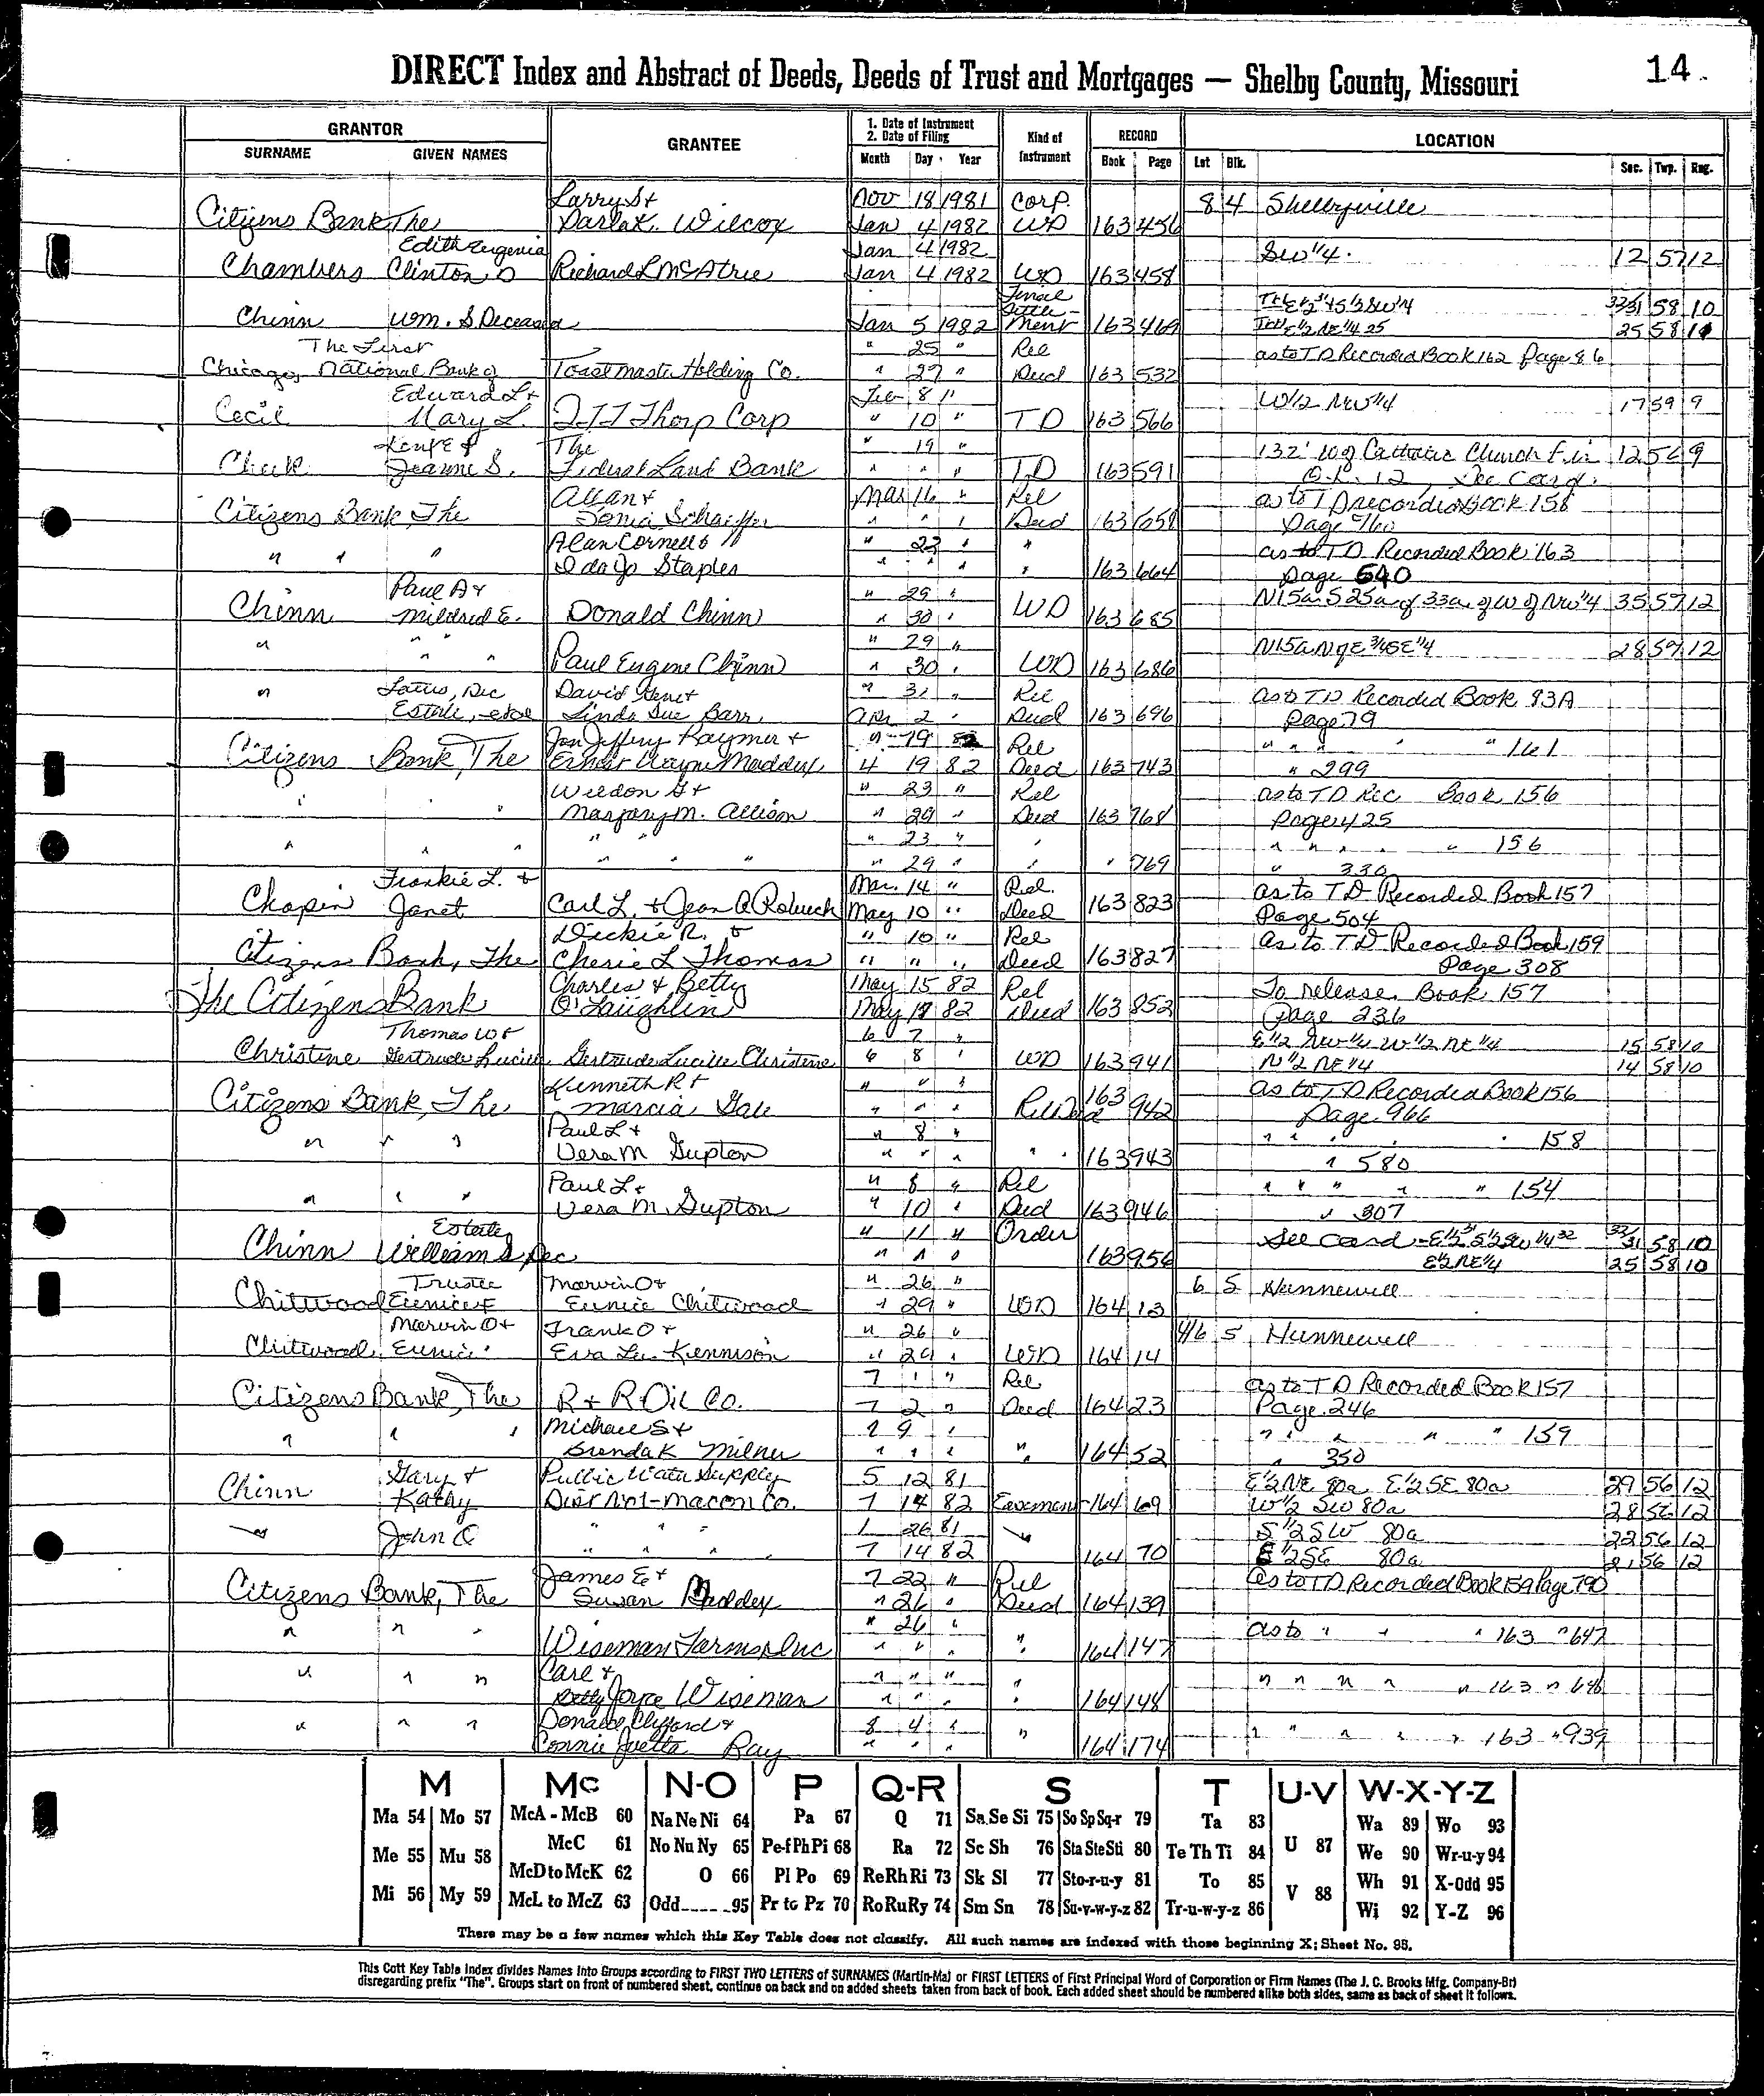 DIRECT Index and Abstract of Deeds, Deeds of Trust and Mortgages — Shelby County, Missouri 14.
GRANTOR GRANTEE 1. Date of Instrument 2. Date of Filing Kind of Instrument RECORD LOCATION
SURNAME GIVEN NAMES Month Day Year Book Page Lot Blk. Sec. Twp. Rng.
Larry S + Nov 18 1981 Corp. 8 4 Shelbyville
Citizens Bank The Darla K. Wilcox Jan 4 1982 WD 163 456
Edith Eugenia Jan 4 1982 SW 1/4. 12 57 12
Chambers Clinton D Richard L McAtree Jan 4 1982 WD 163 458
Final Settle- E 1/2 S 1/2 SW 1/4 58 10
Chinn Wm. S Deceased Jan 5 1982 ment 163 469 E 1/2 NE 1/4 25 25 58
The First " 25 " Rel as to TD Recorded Book 162 Page 86
Chicago, National Bank of Toastmaster Holding Co. " 27 " Deed 163 532
Edward L + Feb 8 " W 1/2 NW 1/4 17 59 9
Cecil Mary L. ITT Thorp Corp " 10 " TD 163 566
The " 19 " 132' W of Catholic Church 12 56 9
Cheek Jeanne S. Federal Land Bank " " " TD 163 591 O.L. 12, See Card.
Allan + Mar 16 " Rel as to TD recorded Book 158
Citizens Bank, The Tonia Schaeffer " " " Deed 163 Page
Alan Cornell + " 23 " " as to TD Recorded Book 163
" " " Ida Jo Staples " " " " 163 664 Page 640
Paul A + " 29 " N15a S 25a of 33a of W of NW 1/4 35 57 12
Chinn Mildred E. Donald Chinn " 30 " WD 163 685
" 29 " 28 57 12
" " " Paul Eugene Chinn " 30 " WD 163 686
" Dec David Gene + " 31 " Rel as to TD Recorded Book 83A
Estate, Linda Sue Barr Apr 2 " Deed 163 696 Page 79
Jon Jeffery Raymer + " 19 82 Rel " " " " " 161
Citizens Bank, The Ernest Wayne Maddex 4 19 82 Deed 163 743 " 299
Weldon G + " 23 " Rel as to TD Rec Book 156
" " Marjory M. Allison " 29 " Deed 163 768 Page 425
" 23 " " " " " " " 156
" " " " " " " 29 " " " 769 " 336
Frankie L. + Mar. 14 " Rel. as to TD Recorded Book 157
Chapin Janet Carl L. + Jean A Robuck May 10 " Deed 163 823 Page 504
Dickie R. + " 10 " Rel as to TD Recorded Book 159
Citizens Bank, The Cherie L Thomas " " " Deed 163 827 Page 308
Charles + Betty May 15 82 Rel To release Book 157
The Citizens Bank O'Laughlin May 82 Deed 163 852 Page 236
Thomas W + 6 7 " E 1/2 NW 1/4 W 1/2 NE 1/4 15 58 10
Christine Gertrude Lucille Gertrude Lucille Christine 6 8 " WD 163 941 N 1/2 NE 1/4 14 58 10
Kenneth R + " " " 163 as to TD Recorded Book 156
Citizens Bank, The Marcia Gale " " " Rel Deed 942 Page 966
Paul L + " 8 " " " " " " 158
" " " Vera M Gupton " " " " " 163 943 " 580
Paul L + " 8 " Rel " " " " " 154
" " " Vera M. Gupton " 10 " Deed 163 946 " 307
Estate " 11 " Order See Card - 58 10
Chinn William S Dec " " " 163 956 E 1/2 NE 1/4 25 58 10
Trustee Marvin O + " 26 " 6 5 Hunnewell
Chitwood Eunice F Eunice Chitwood " 29 " WD 164 13
Marvin O + Frank O + " 26 " 4/6 5 Hunnewell
Chitwood, Eunice Eva Lu Kennison " 29 " WD 164 14
7 1 " Rel as to TD Recorded Book 157
Citizens Bank, The R + R Oil Co. 7 2 " Deed 164 23 Page 246
Michael S + 7 9 " " " " " " 159
" " " Brenda K Milner " " " " 164 52 " 350
Gary + Public Water Supply 5 12 81 E 1/2 NE 80a E 1/2 SE 80a 29 56 12
Chinn Kathy Dist No 1 - Macon Co. 7 14 82 Easement 164 69 W 1/2 SW 80a 28 56 12
1 26 81 S 1/2 SW 80a 22 56 12
" John O " " " " 7 14 82 " 164 70 E 1/2 SE 80a 21 56 12
James E + 7 22 " Rel as to TD Recorded Book 159 Page 790
Citizens Bank, The Susan " 26 " Deed 164 139
" 26 " as to " " " 163 " 647
" " " Wiseman Farms Inc " " " " 164 147
Carl + " " " " " " " " 163 " 646
" " " Betty Joyce Wiseman " " " " 164 148
Donald Clifford + 8 4 "
" " " Connie Juetta Ray " " " " 164 174 " " " " " 163 " 939
M Mc N-O P Q-R S T U-V W-X-Y-Z
Ma 54 Mo 57 McA - McB 60 Na Ne Ni 64 Pa 67 Q 71 Sa Se Si 75 So Sp Sq-r 79 Ta 83 Wa 89 Wo 93
Me 55 Mu 58 McC 61 No Nu Ny 65 Pe-f Ph Pi 68 Ra 72 Sc Sh 76 Sta Ste Sti 80 Te Th Ti 84 U 87 We 90 Wr-u-y 94
McD to McK 62 O 66 Pl Po 69 Re Rh Ri 73 Sk Sl 77 Sto-r-u-y 81 To 85 Wh 91 X-Odd 95
Mi 56 My 59 McL to McZ 63 Odd 95 Pr to Pz 70 Ro Ru Ry 74 Sm Sn 78 Su-v-w-y-z 82 Tr-u-w-y-z 86 V 88 Wi 92 Y-Z 96
There may be a few names which this Key Table does not classify. All such names are indexed with those beginning X; Sheet No. 95.
This Cott Key Table Index divides Names into Groups according to FIRST TWO LETTERS of SURNAMES (Martin-Ma) or FIRST LETTERS of First Principal Word of Corporation or Firm Names (The J. C. Brooks Mfg. Company-Br)
disregarding prefix "The". Groups start on front of numbered sheet, continue on back and on added sheets taken from back of book. Each added sheet should be numbered alike both sides, same as back of sheet it follows.